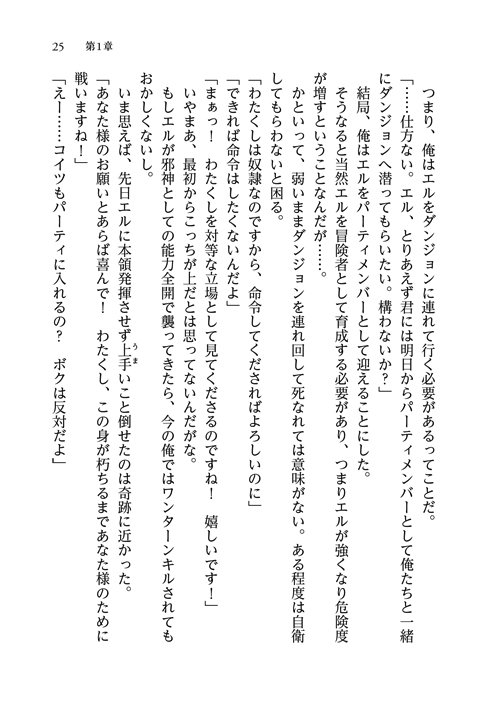 25　第1章
　つまり、俺はエルをダンジョンに連れて行く必要があるってことだ。
「……仕方ない。エル、とりあえず君には明日からパーティメンバーとして俺たちと一緒
にダンジョンへ潜ってもらいたい。構わないか？」
　結局、俺はエルをパーティメンバーとして迎えることにした。
　そうなると当然エルを冒険者として育成する必要があり、つまりエルが強くなり危険度
が増すということなんだが……。
　かといって、弱いままダンジョンを連れ回して死なれては意味がない。ある程度は自衛
してもらわないと困る。
「わたくしは奴隷なのですから、命令してくださればよろしいのに」
「できれば命令はしたくないんだよ」
「まぁっ！　わたくしを対等な立場として見てくださるのですね！　嬉しいです！」
　いやまあ、最初からこっちが上だとは思ってないんだがな。
　もしエルが邪神としての能力全開で襲ってきたら、今の俺ではワンターンキルされても
おかしくないし。
　いま思えば、先日エルに本領発揮させず上手いこと倒せたのは奇跡に近かった。
うま
「あなた様のお願いとあらば喜んで！　わたくし、この身が朽ちるまであなた様のために
戦いますね！」
「えー……コイツもパーティに入れるの？　ボクは反対だよ」